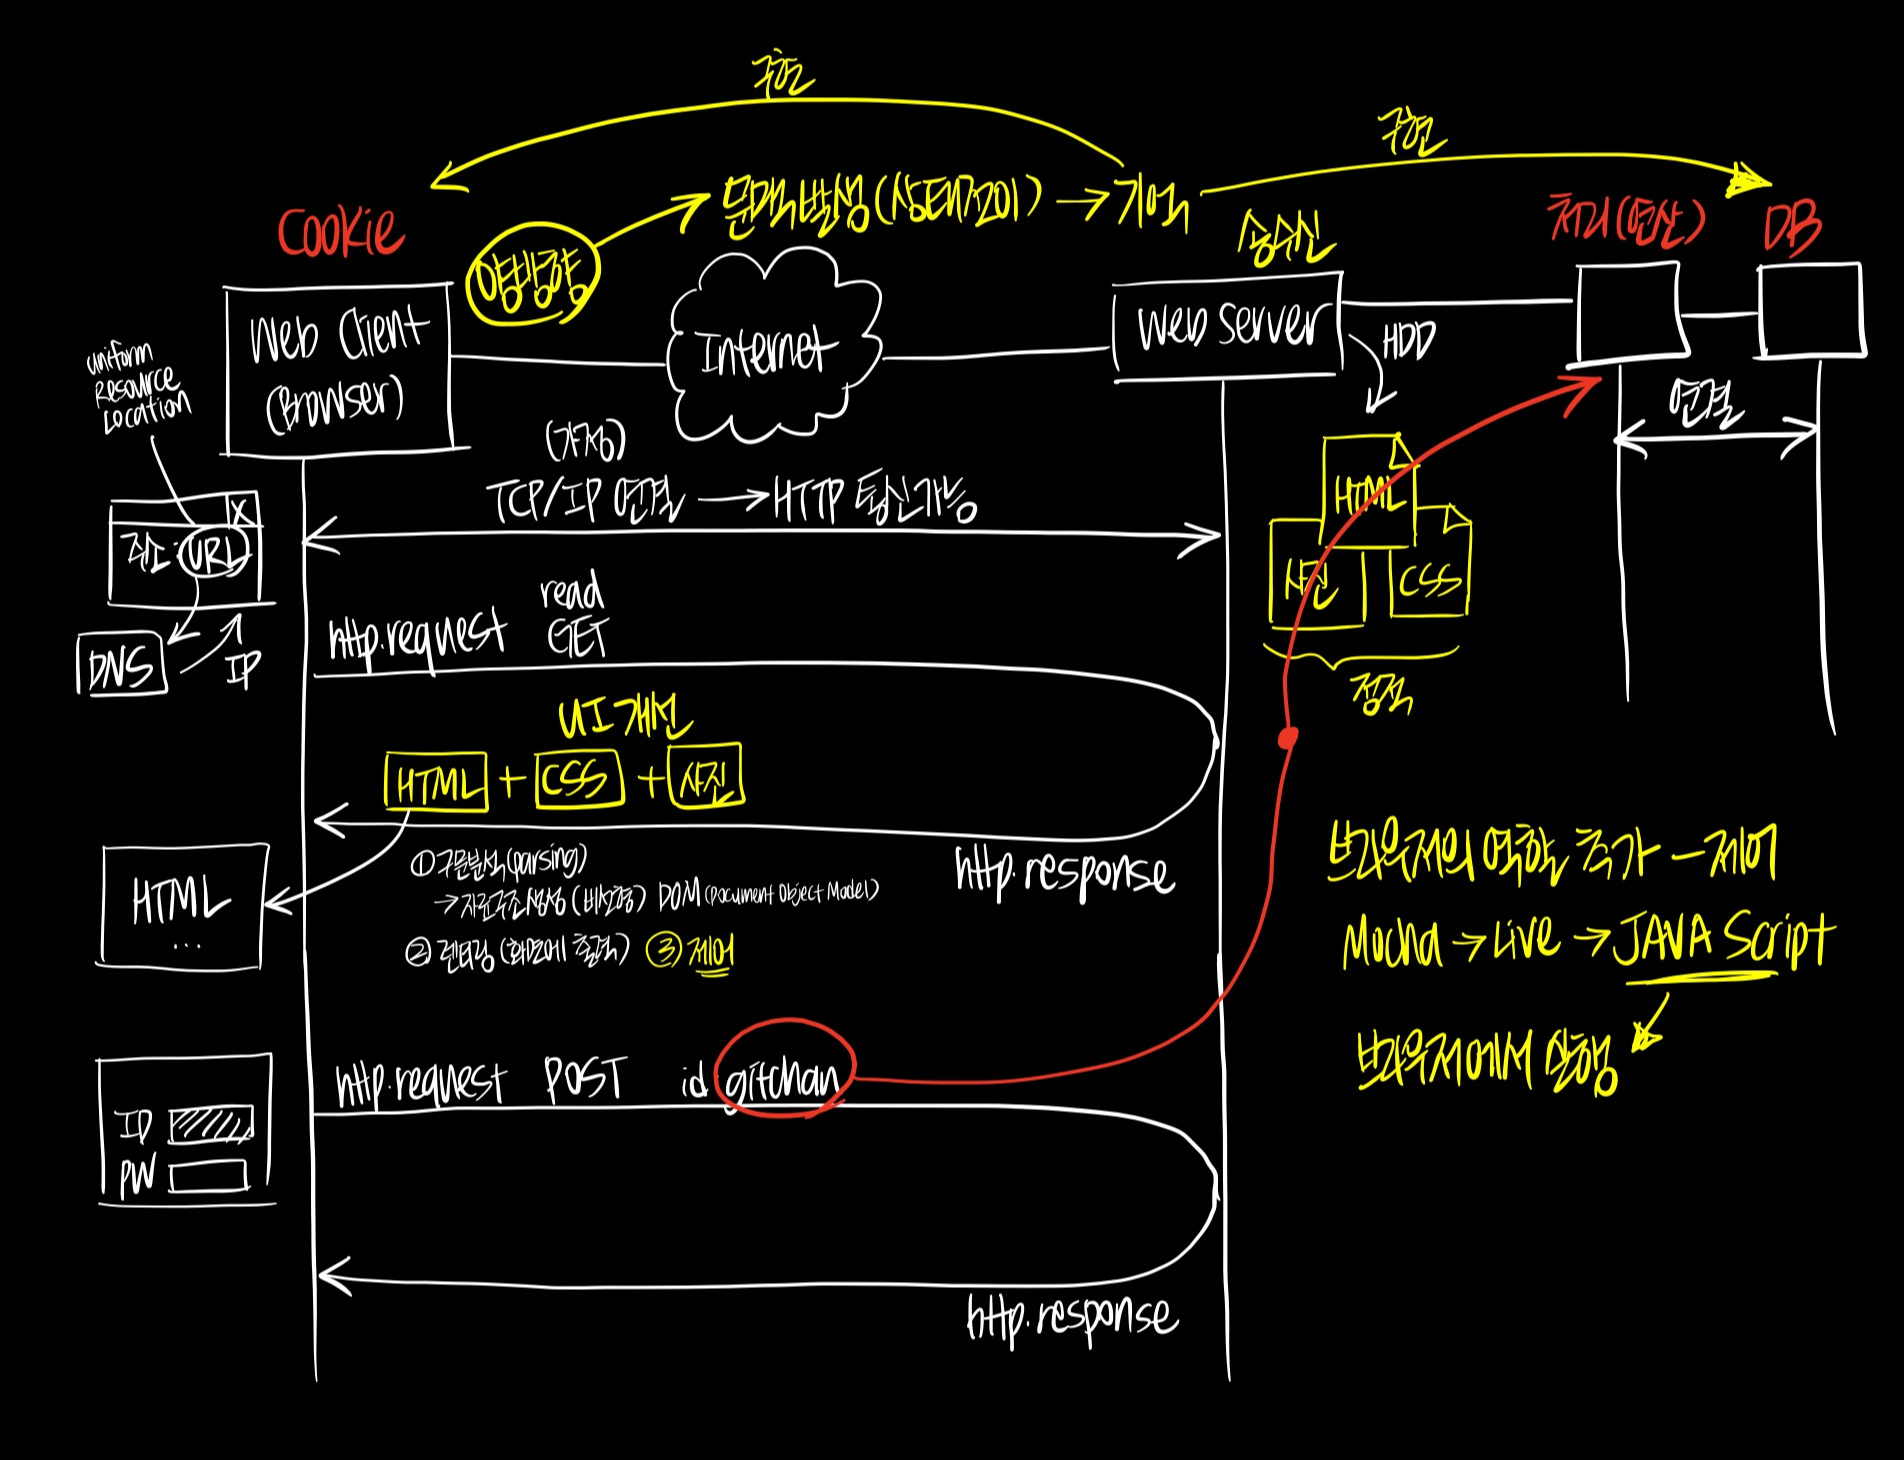 구현
구현
양방향 → 문맥발생(상태전이) → 기억
Cookie
송수신
처리(연산)
DB
Web Client
(Browser)
Internet
Web Server
HDD
연결
uniform
Resource
Location
주소: URL
X
DNS
IP
(가정)
TCP/IP 연결 → HTTP 통신가능
HTML
사진
CSS
정적
read
http.request GET
UI 개선
HTML + CSS + 사진
http.response
HTML
...
① 구문분석(parsing)
→ 자료구조생성(비선형) DOM(Document Object Model)
② 렌더링(화면에 출력) ③ 제어
브라우저의 역할 추가 - 제어
Mocha → Live → JAVA Script
브라우저에서 실행
http.request POST id gitchan
ID
PW
http.response